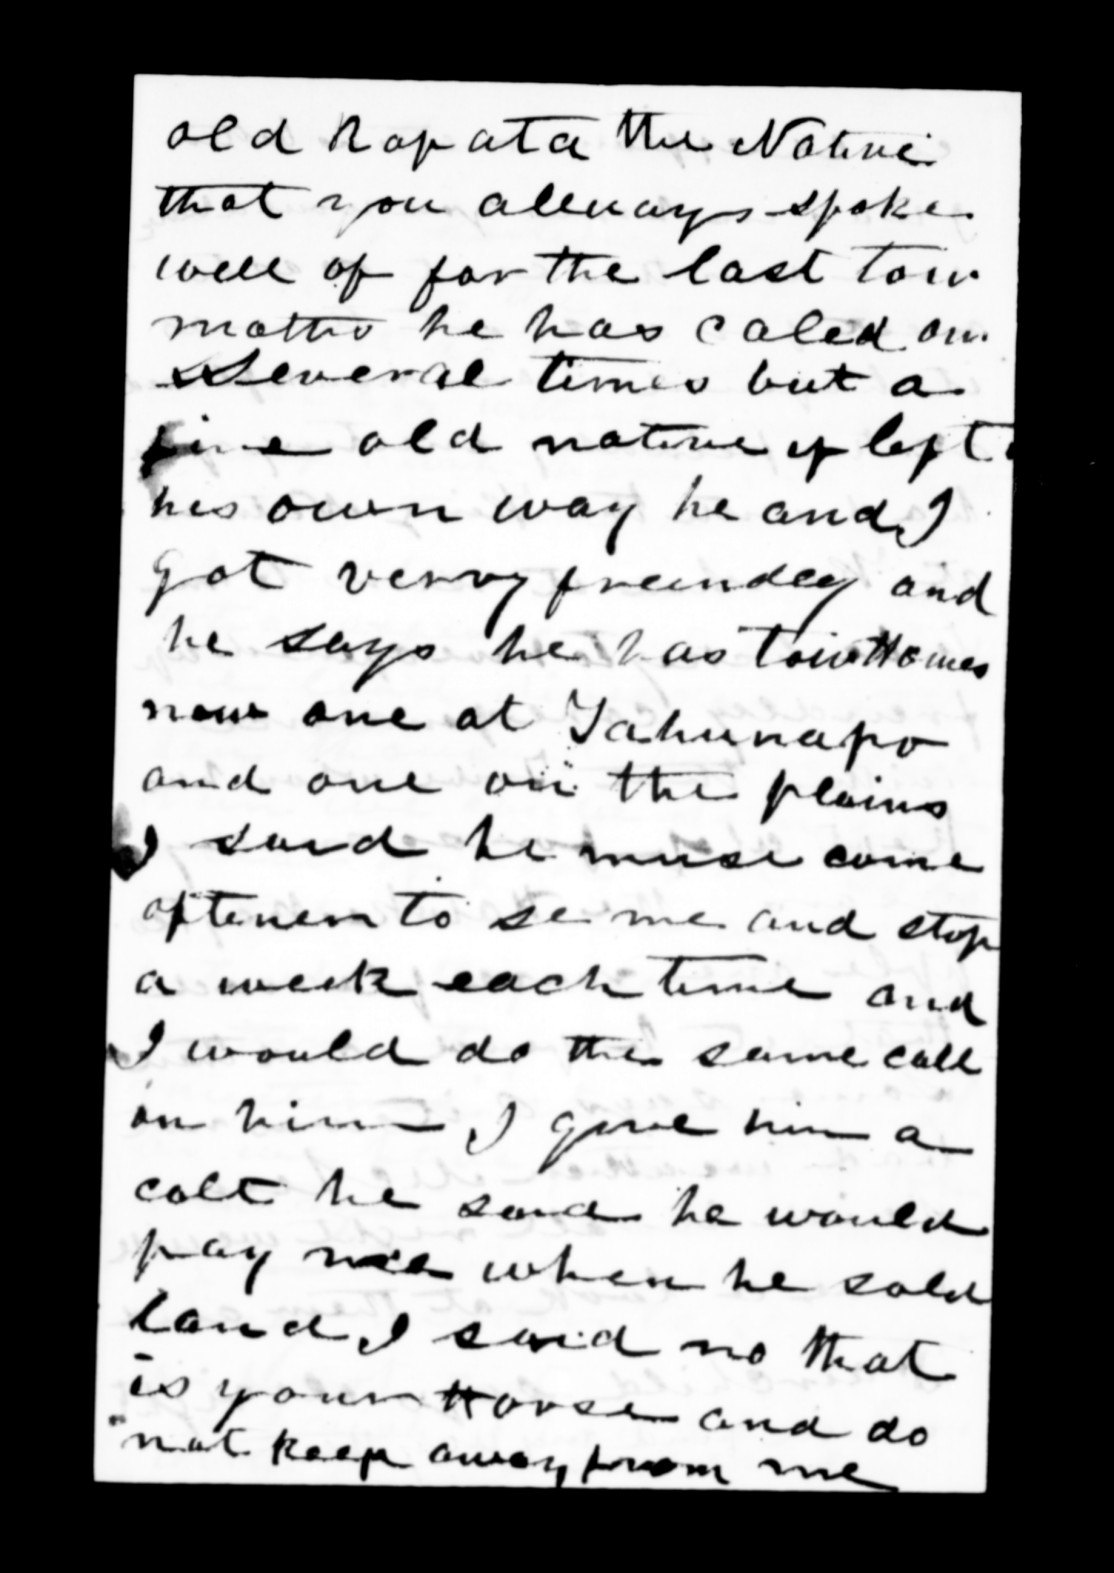 old Ropata the Native
that you allways spoke
well of for the last tow
moths he has caled on
several times but a
fine old native if left
his own way he and I
got verry freindley and
he says he has tow Homes
now one at Tahunapo
and one on the plains
I said he muse come
oftener to se me and stop
a week each time and
I would do the same call
on him I gave him a
colt he said he would
pay me when he sold
land I said no that
is your Horse and do
not keep away from me